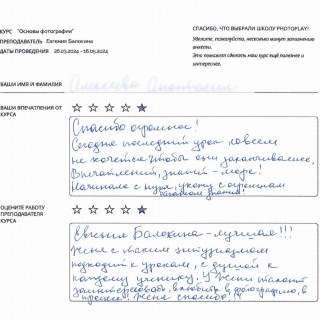 КУРС "Основы фотографии"
ПРЕПОДАВАТЕЛЬ Евгения Балокина
ДАТЫ ПРОВЕДЕНИЯ 26.03.2024 - 16.05.2024
СПАСИБО, ЧТО ВЫБРАЛИ ШКОЛУ PHOTOPLAY!
Уделите, пожалуйста, несколько минут заполнению
анкеты.
Это поможет сделать наш курс ещё полезнее и
интереснее.
ВАШИ ИМЯ И ФАМИЛИЯ
ВАШИ ВПЕЧАТЛЕНИЯ ОТ
КУРСА
Спасибо огромное!
Сегодня последний урок, совсем
не хочется чтобы они заканчивались,
Впечатлений, знаний - море!
Начинала с нуля, ухожу с огромным
знаний!
ОЦЕНИТЕ РАБОТУ
ПРЕПОДАВАТЕЛЯ
КУРСА
Евгения Балокина - лучшая!!!
Женя с таким энтузиазмом
подходит к урокам, с душой к
каждому ученику. У Жени талант
заинтересовать, влюбить в фотографию, в
Женя спасибо!